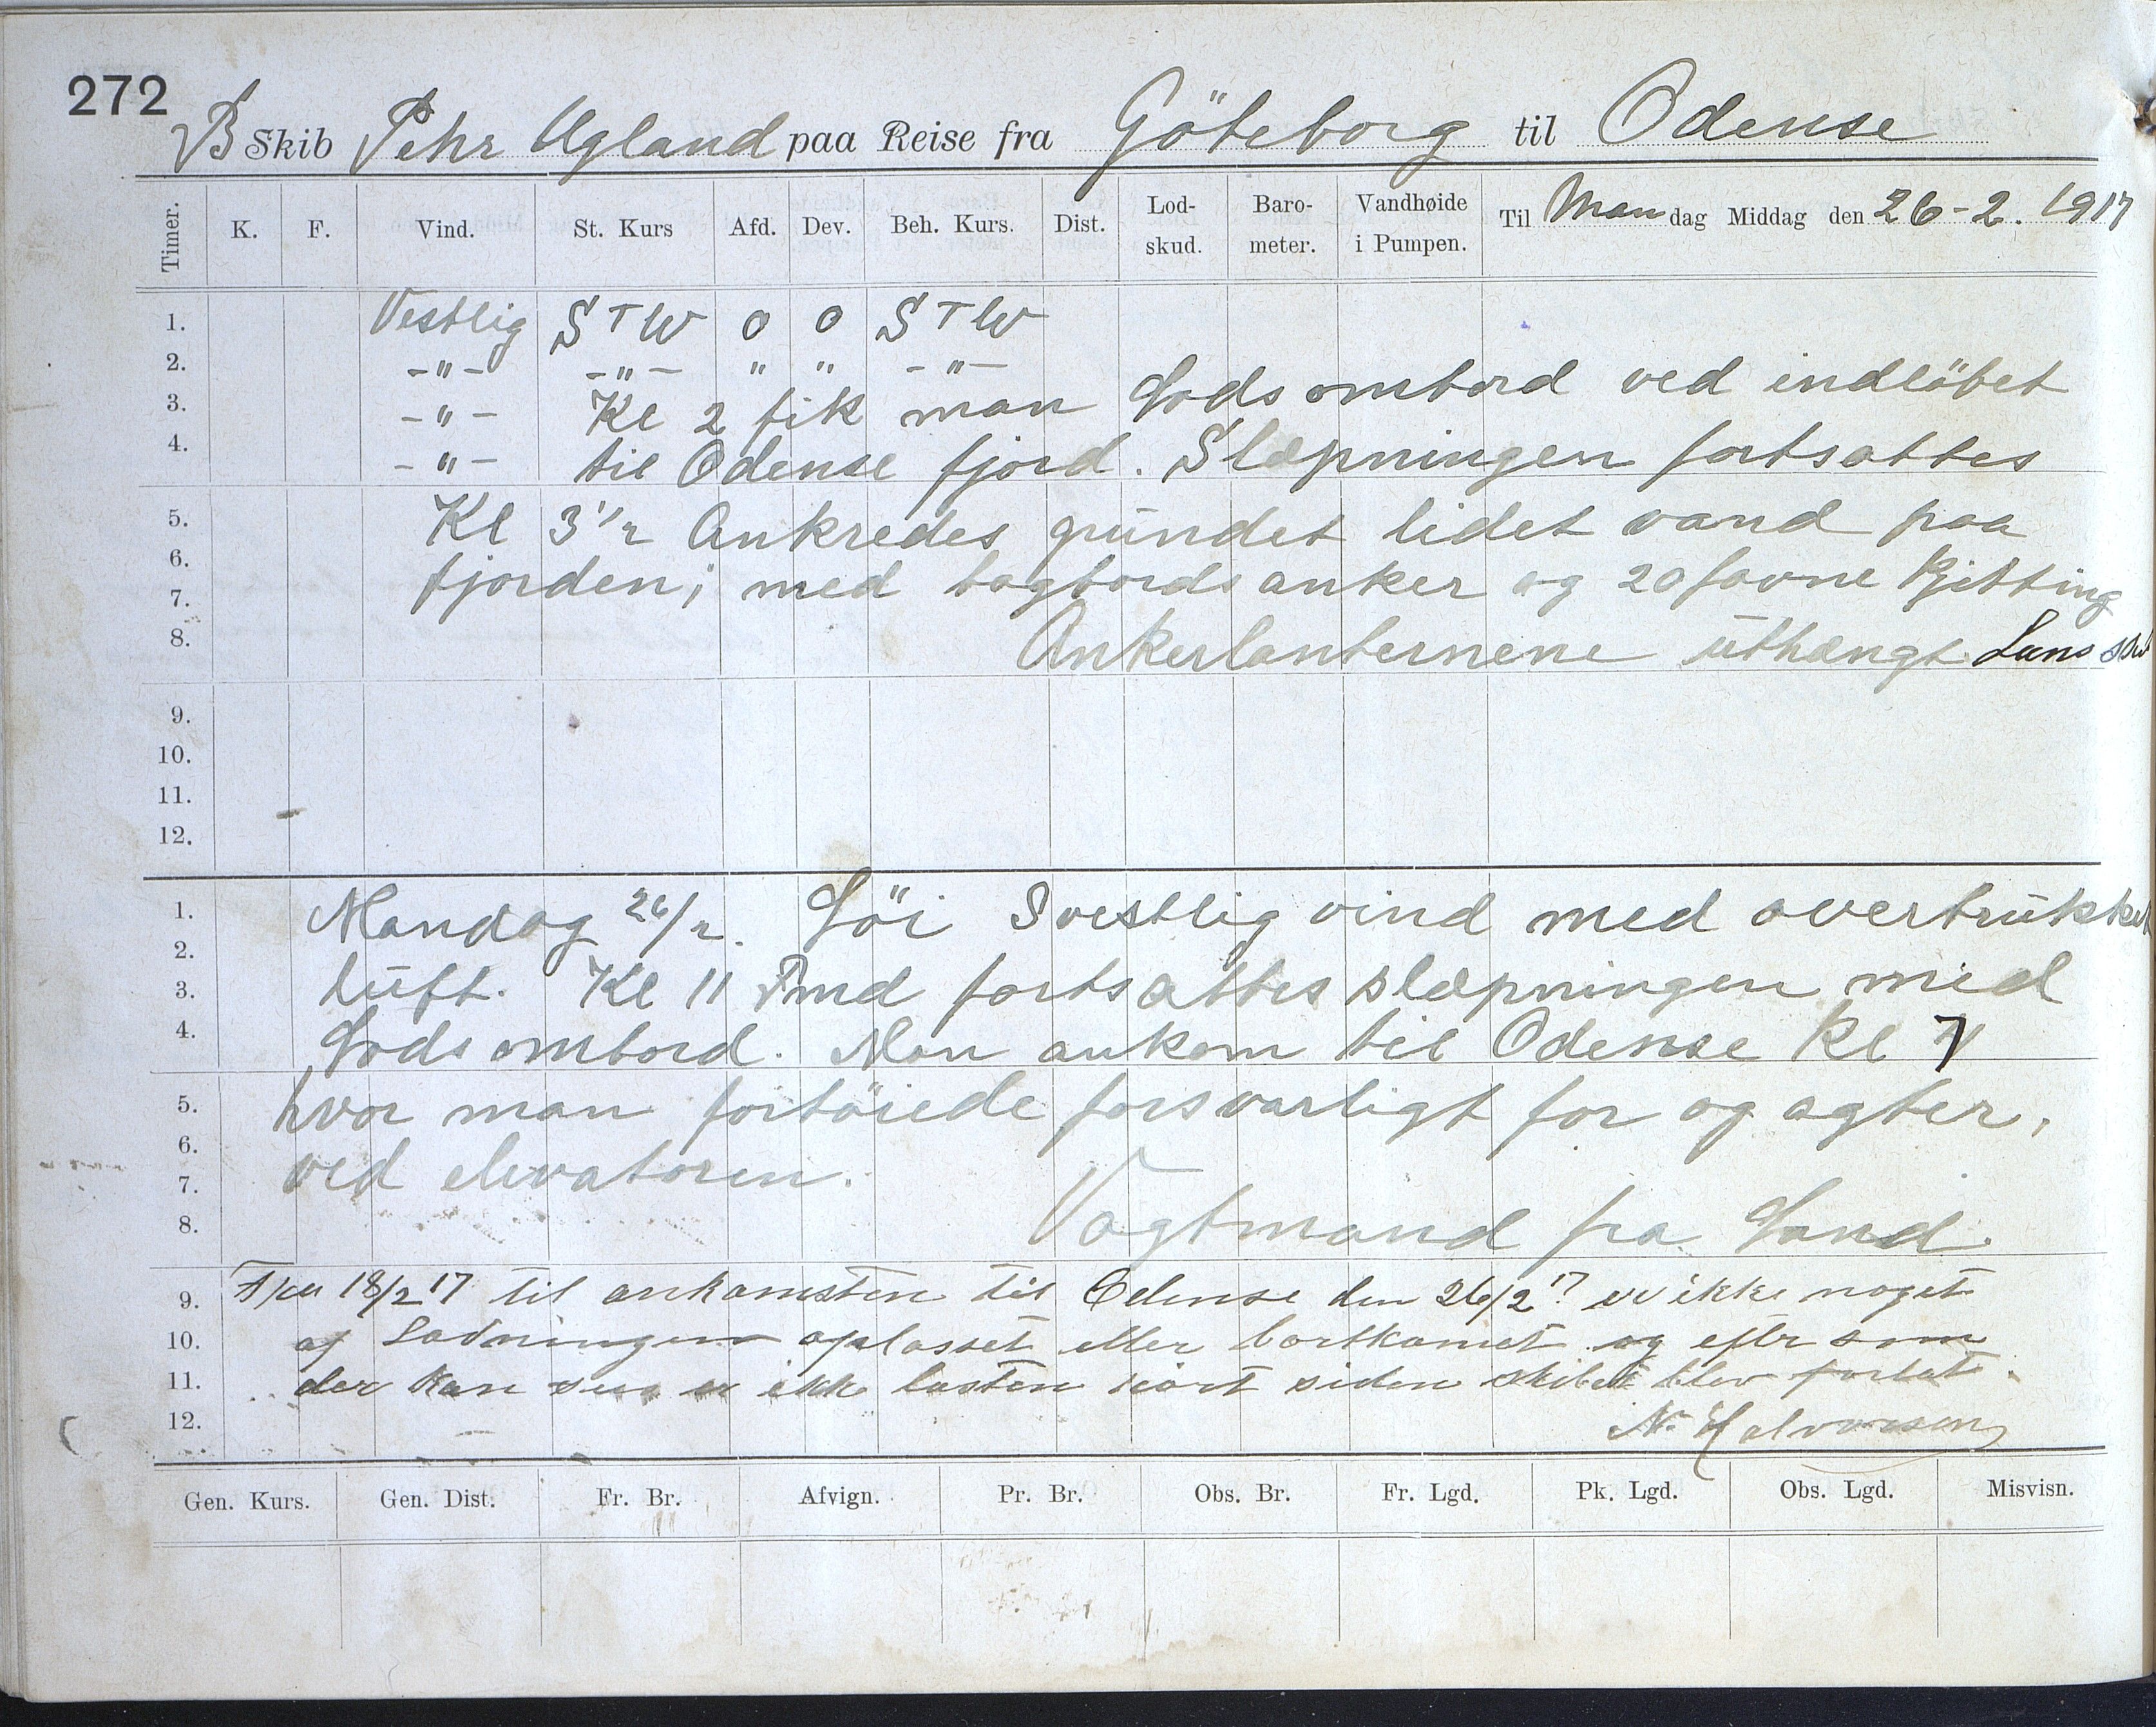 272
B Skib Pehr Ugland paa Reise fra Göteborg til Odense
Timer. K. F. Vind. St. Kurs Afd. Dev. Beh. Kurs. Dist. Lod-skud. Baro-meter. Vandhøide i Pumpen. Til Man dag Middag den 26-2. 1917
1. Vestlig STW 0 0 STW
2. -"- -"- " " -"-
3. -"- Kl 2 fik man Lods ombord ved indlöbet
4. -"- til Odense fjord. Slæpningen fortsattes
5. Kl 3 1/2 Ankredes grundet lidet vand paa
6. fjorden; med bagbords anker og 20 favne Kjetting
7.
8. Ankerlanternene uthængt. Lens
9.
10.
11.
12.
1. Mandag 26/2. Löi S vestlig vind med overtrukket
2. luft. Kl 11 Fmd fortsattes slæpningen med
3.
4. Lods ombord. Man ankom til Odense Kl 7
5. hvor man fortöiede forsvarligt for og agter,
6. ved elevatoren.
7.
8. Vagtmand fra Land.
9. Fra 18/2 17 til ankomsten til Odense den 26/2 17 er ikke noget
10. af Ladningen oplosset eller bortkomet og efter som
11. der kan sees er ikke lasten rört siden skibet blev forlat.
12. N. Halvorsen
Gen. Kurs. Gen. Dist. Fr. Br. Afvign. Pr. Br. Obs. Br. Fr. Lgd. Pk. Lgd. Obs. Lgd. Misvisn.